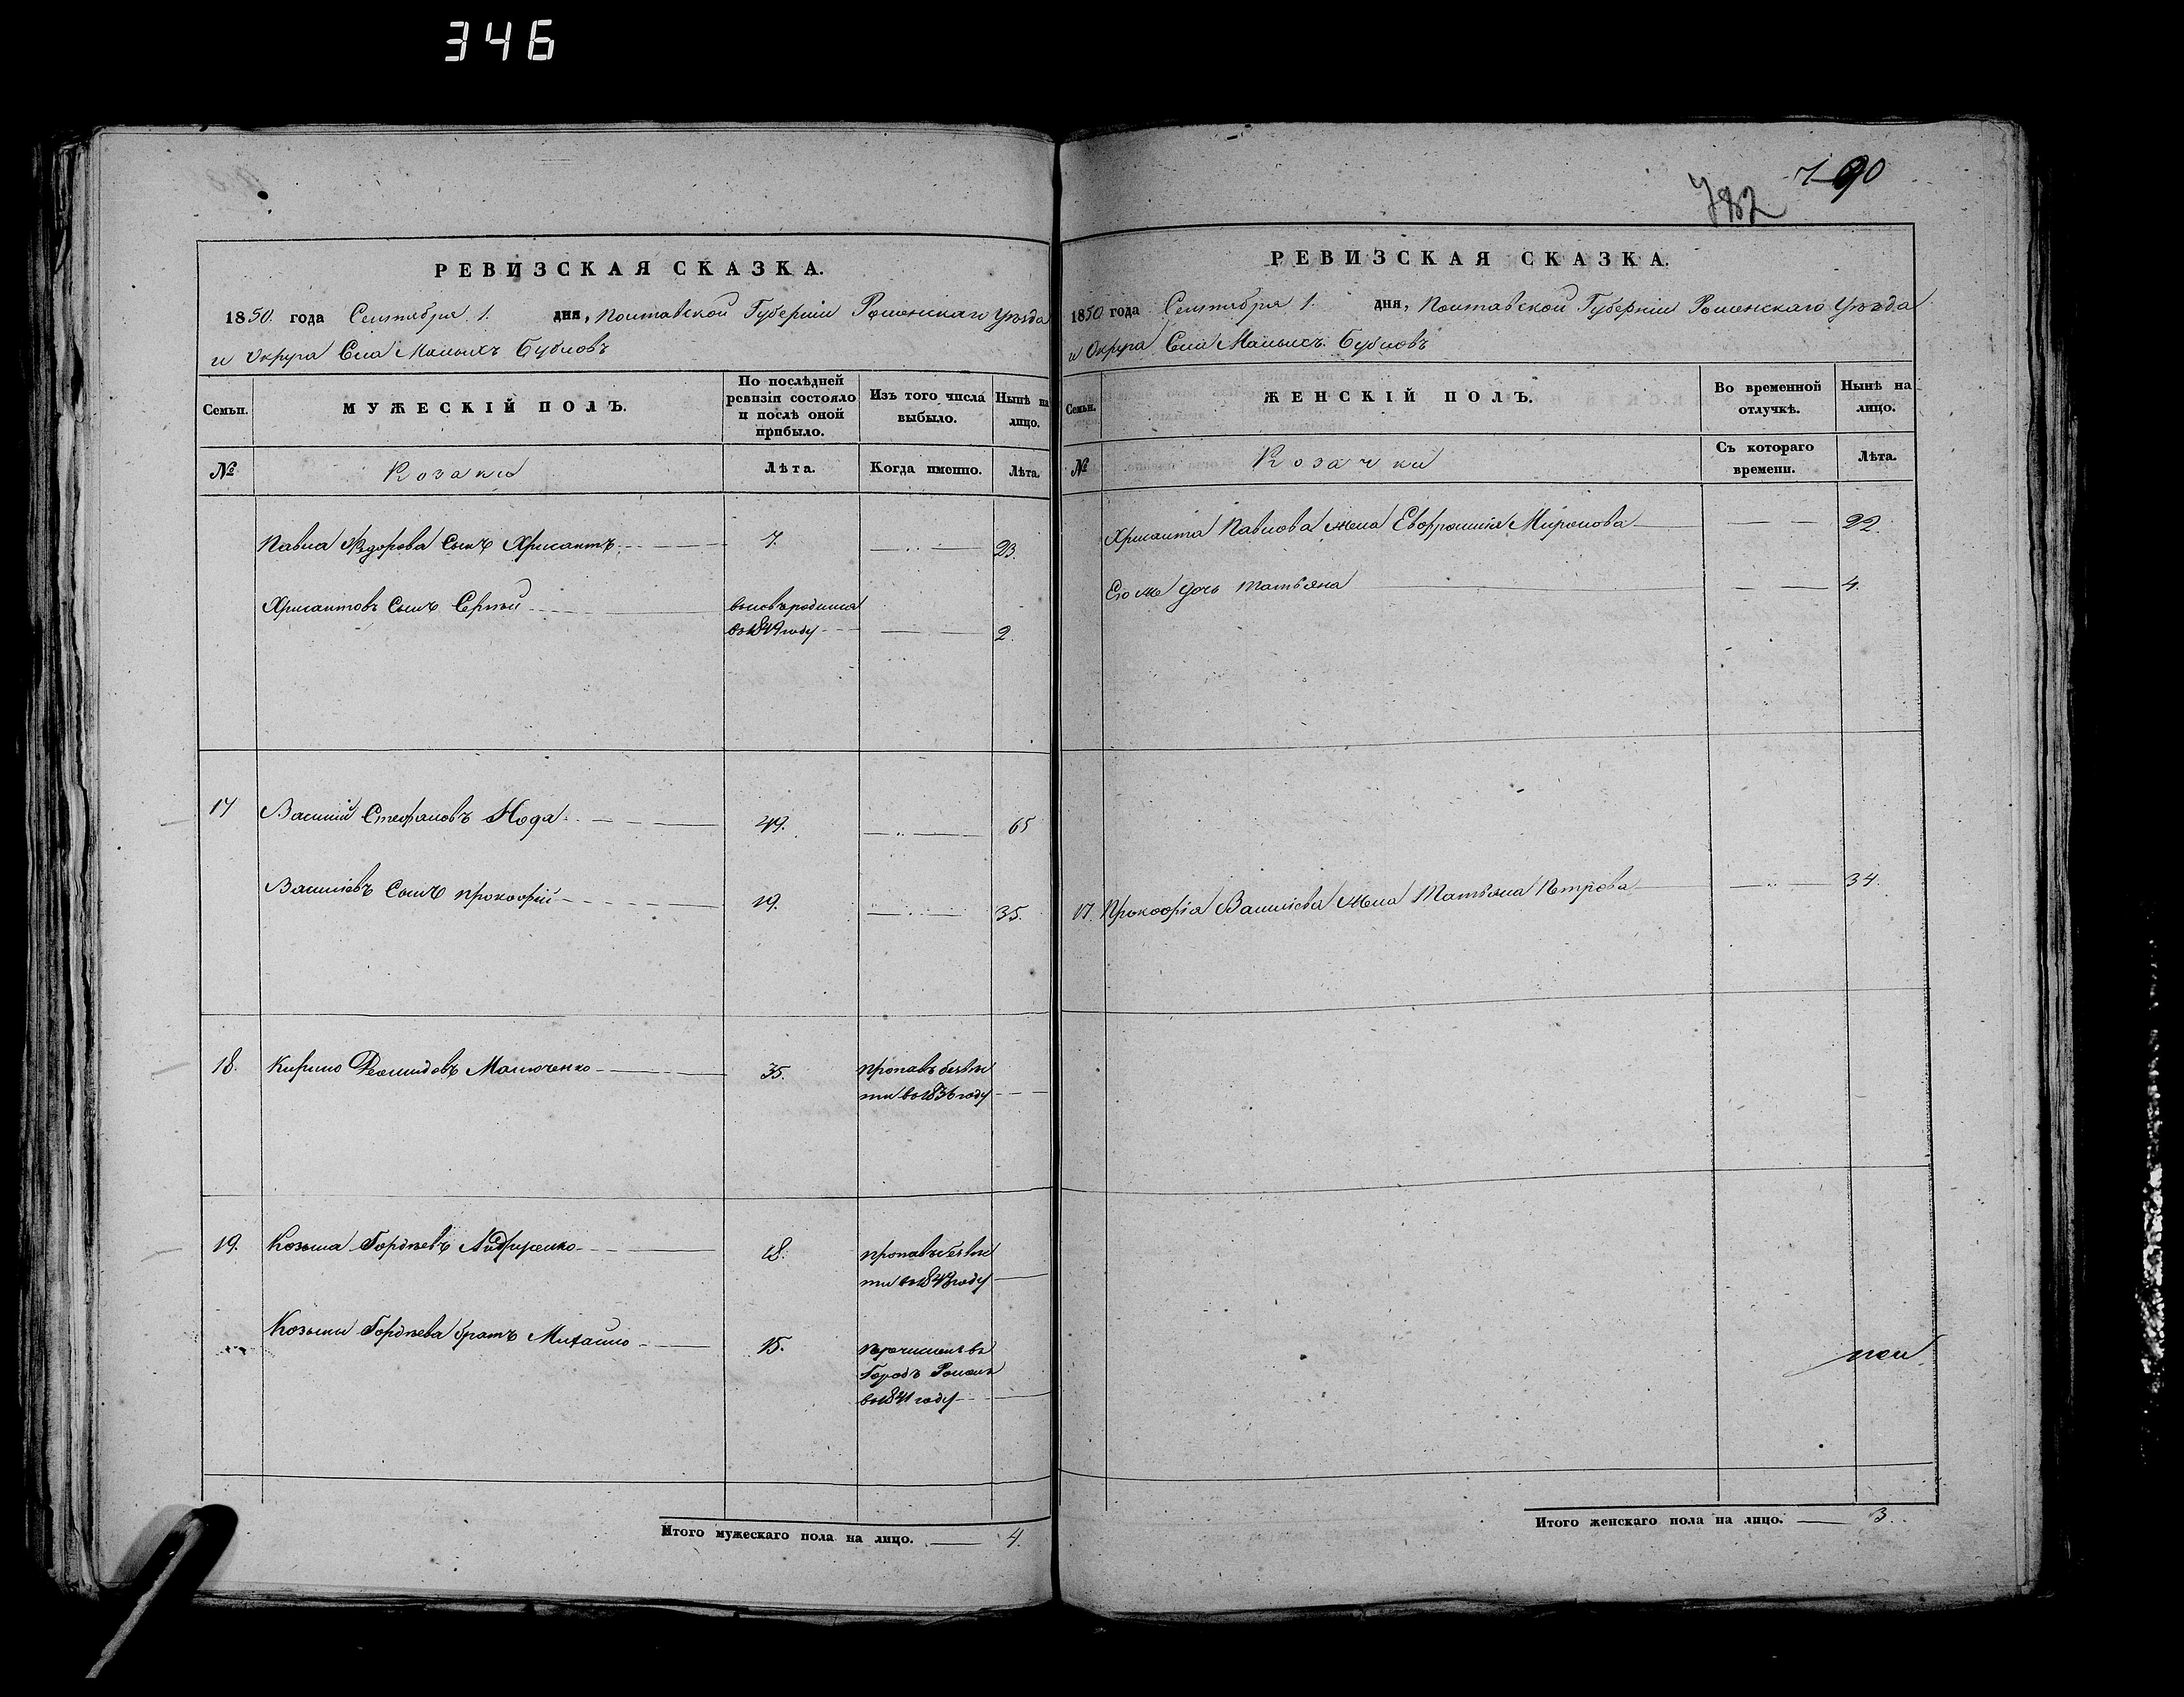 346
790
782
РЕВИЗСКАЯ СКАЗКА.
1850 года Сентября 1. дня, Полтавской Губернiи Роменскаго Уѣзда
и Округа Села Малыхъ Бубновъ
Семьи.
МУЖЕСКІЙ ПОЛЪ.
По послѣдней ревизіи состояло и послѣ оной прибыло.
Изъ того числа выбыло.
Нынѣ на лицо.
№
Козаки
Лѣта.
Когда именно.
Лѣта.
Павла Ѳедорова Сынъ Хрисантъ 7. 23.
Хрисантовъ Сынъ Сергѣй
во 1849 году 2.
17 Василий Стефановъ Нода 49. 65
Василіевъ Сынъ Прокофій 19. 35.
18. Кирило Демидовъ 35. Пропавъ безвѣ
сти во 1836 году
19. Козьма Гордѣевъ Андрущенко 18. пропавъ безвѣ
сти во 1843 году
Козьмы Гордѣева братъ Михайло 15. Перечисленъ въ
Городъ Роменъ
во 1841 году
Итого мужескаго пола на лицо. 4.
РЕВИЗСКАЯ СКАЗКА.
1850 года Сентября 1. дня, Полтавской Губернiи Роменскаго Уѣзда
и Округа Села Малыхъ Бубновъ
Семьи.
ЖЕНСКІЙ ПОЛЪ.
Во временной отлучкѣ.
Нынѣ на лицо.
№
Козачки
Съ котораго времени.
Лѣта.
Хрисанта Павлова жена Евфросинія Миронова 22.
Его же дочь Татьяна 4.
17. Прокофія Василіева жена Татьяна Петрова 34.
Итого женскаго пола на лицо. 3.